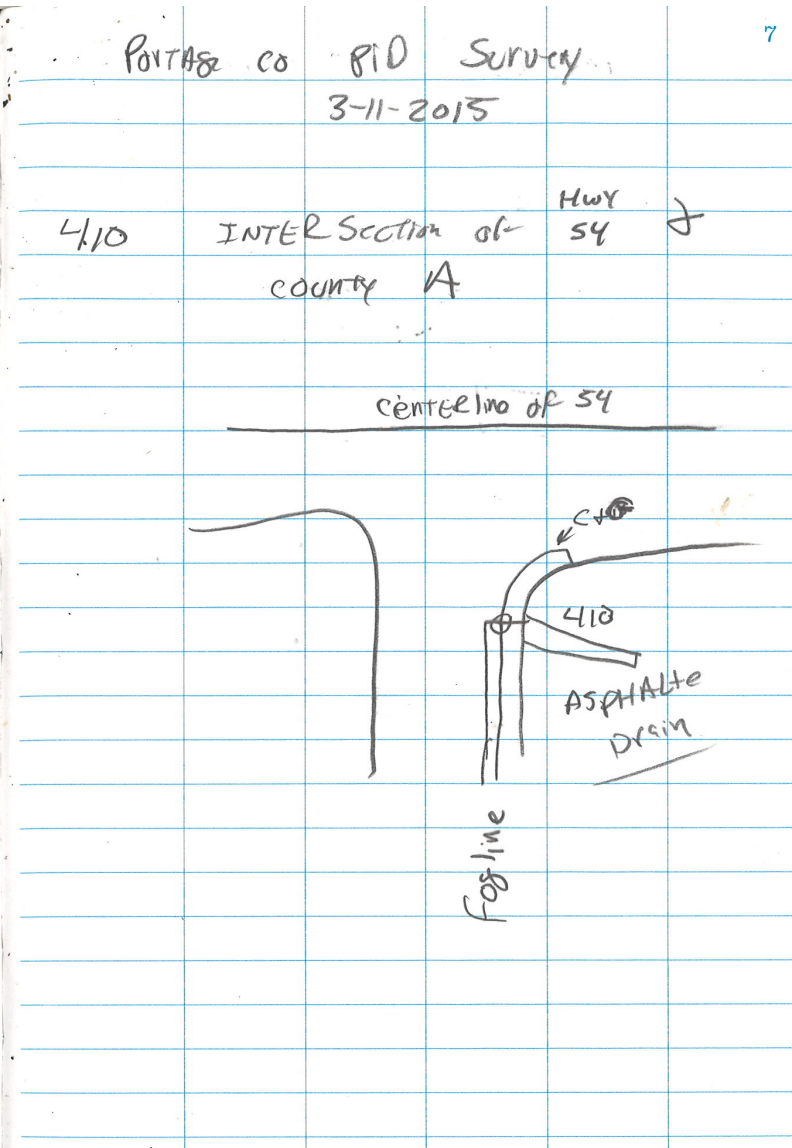 7
PORTAGE CO PID Survey
3-11-2015
410 INTERSection of Hwy 54 &
county A
centERline of 54
410
ASPHALte
Drain
Fog line